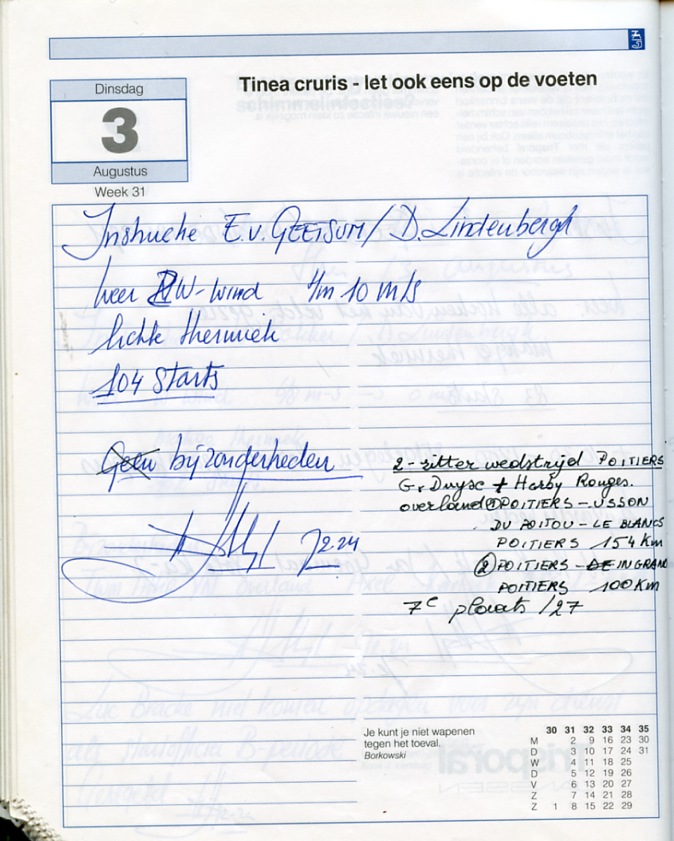 Dinsdag
3
Augustus
Week 31
Tinea cruris - let ook eens op de voeten
Instructie E.v. GEETSUM / D. Lindenbergh
weer W-wind 4/m 10 m/s
lichte thermiek
104 Starts
Geen bijzonderheden
2-zitter wedstrijd POITIERS
G. Duysc + Harby Rouges.
overland ① POITIERS - USSON
DU POITOU - LE BLANCS
POITIERS 154 Km
② POITIERS - INGRAND
POITIERS 100 Km
7e plaats /27
Je kunt je niet wapenen
tegen het toeval.
Borkowski
30 31 32 33 34 35
M 2 9 16 23 30
D 3 10 17 24 31
W 4 11 18 25
D 5 12 19 26
V 6 13 20 27
Z 7 14 21 28
Z 1 8 15 22 29